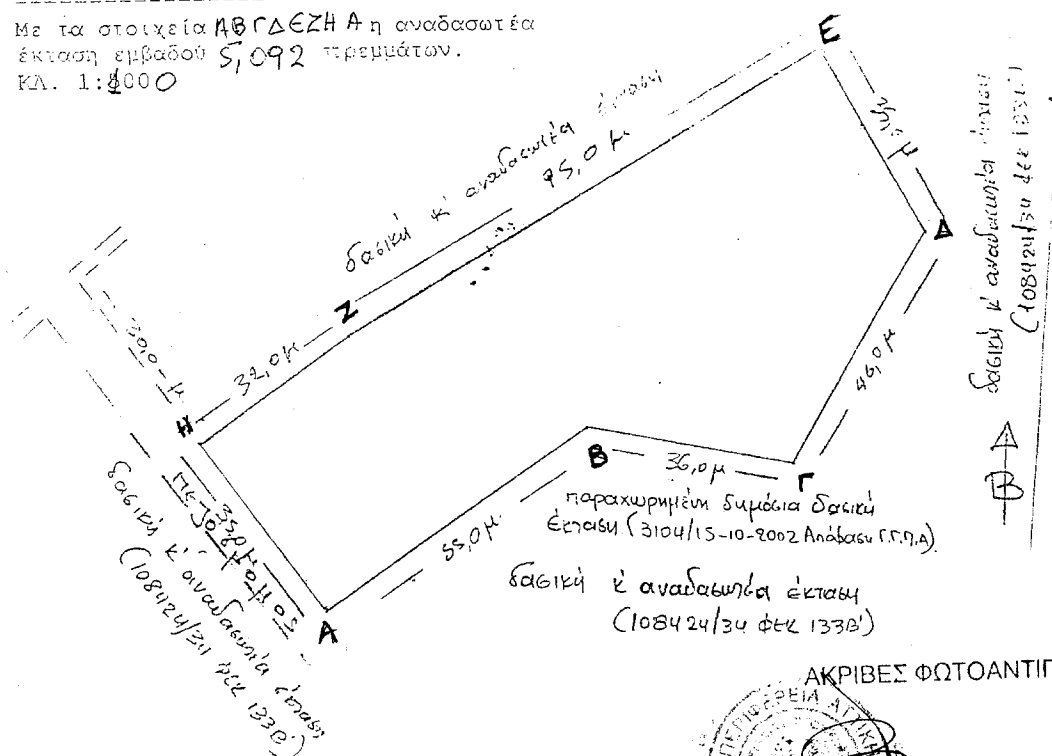 Με τα στοιχεία ΑΒΓΔΕΖΗΑ η αναδασωτέα
έκταση εμβαδού 5,092 στρεμμάτων.
ΚΛ. 1:1000
Ε
δασική κ' αναδασωτέα έκταση
95,0 μ
Δ
δασική κ' αναδασωτέα έκταση
(108424/34 ΦΕΚ 133Β')
Ζ
32,0 μ
30,0 μ
Η
46,0 μ
Β
36,0 μ
Γ
Β
παραχωρημένη δημόσια δασική
έκταση (3104/15-10-2002 Απόφαση Γ.Γ.Π.Α)
55,0 μ.
35,0 μ
πεζόδρομος
Α
δασική κ' αναδασωτέα έκταση
(108424/34 ΦΕΚ 133Β')
δασική κ' αναδασωτέα έκταση
(108424/34 ΦΕΚ 133Β')
ΑΚΡΙΒΕΣ ΦΩΤΟΑΝΤΙΓ
ΠΕΡΙΦΕΡΕΙΑ ΑΤΤΙΚΗ